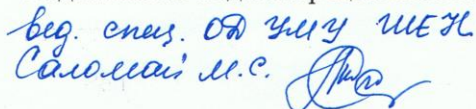 вед. спец. ОД УМУ ШЕН
Саломай М.С.